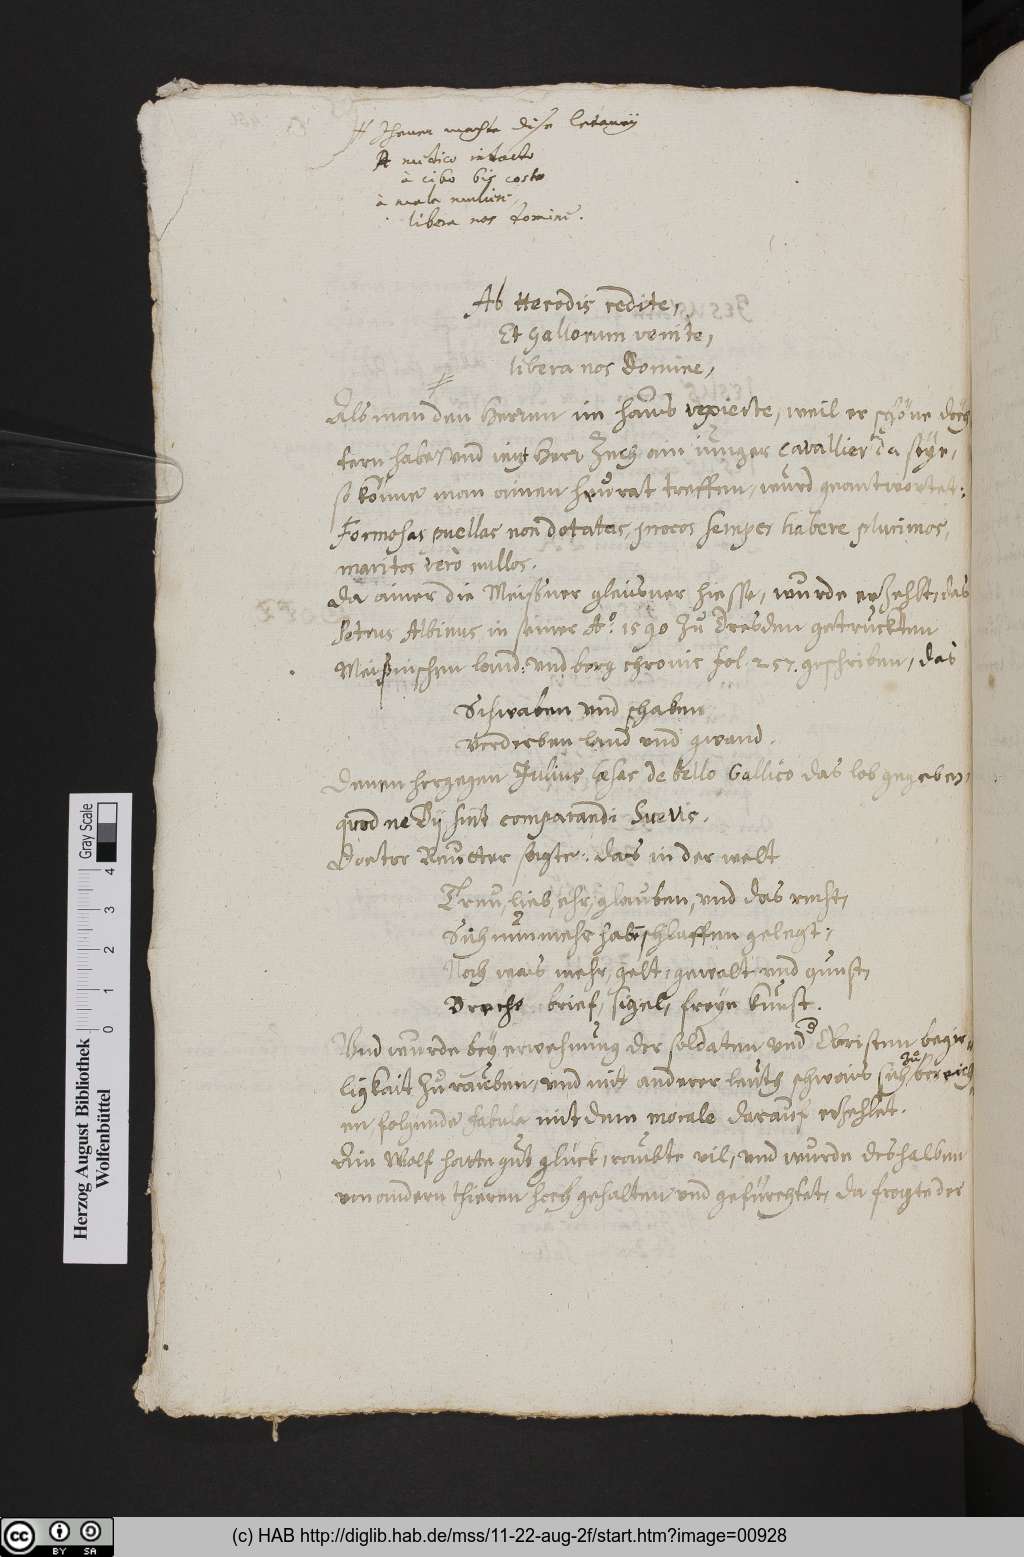 # Jhener machte dise letaneÿ
A medico indocto
à cibo bis cocto
à mala muliere,
libera nos Domine.
Ab Herodis redite,
Et Gallorum venite,
libera nos Domine,
Als man den Herrn im haus vexierte, weil er schöne döch
tern habe, und iezt Herr Zech ain iunger Cavallier da seye,
so könne man ainen heurat treffen, wurd geantwortet:
Formosas puellas non dotatas, procos semper habere plurimos,
maritos verò nullos.
Da ainer die Meißner gleisner hiesse, wurde erzehlt, das
Petrus Albinus in seiner Aº. 1590 zu Dresden getruckhten
Meißnischen land: und berg chronic fol. 257. geschriben, das
Schwaben und schaben
verderben land und gwand.
Denen hergegen Julius Cæsar de bello Gallico das lob gegeben,
quod ne Dij sint comparandi Suevis.
Doctor Reutter sagte: das in der welt
Treu, lieb, ehr, glauben, und das recht,
Sich nunmehr haben schlaffen gelegt:
Noch mais mehr, gelt, gewalt und gunst,
Breche brief, sigel, freye kunst.
Und wurde bey erwehnung der soldaten und Obristen begir-
ligkait zu rauben, und mit anderer leuth schwais sich zu bereich
en folgende fabula mit dem morale darauf erzehlet.
Ain Wolf hatte gut glück, raubte vil, und wurde deshalben
von andern thieren hoch gehalten und gefürchtet, da fragte der
Gray Scale
0 1 2 3 4
Herzog August Bibliothek
Wolfenbüttel
cc BY SA
(c) HAB http://diglib.hab.de/mss/11-22-aug-2f/start.htm?image=00928